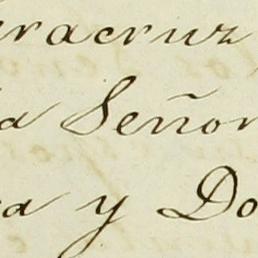 eracruz
a Señor
a y Do